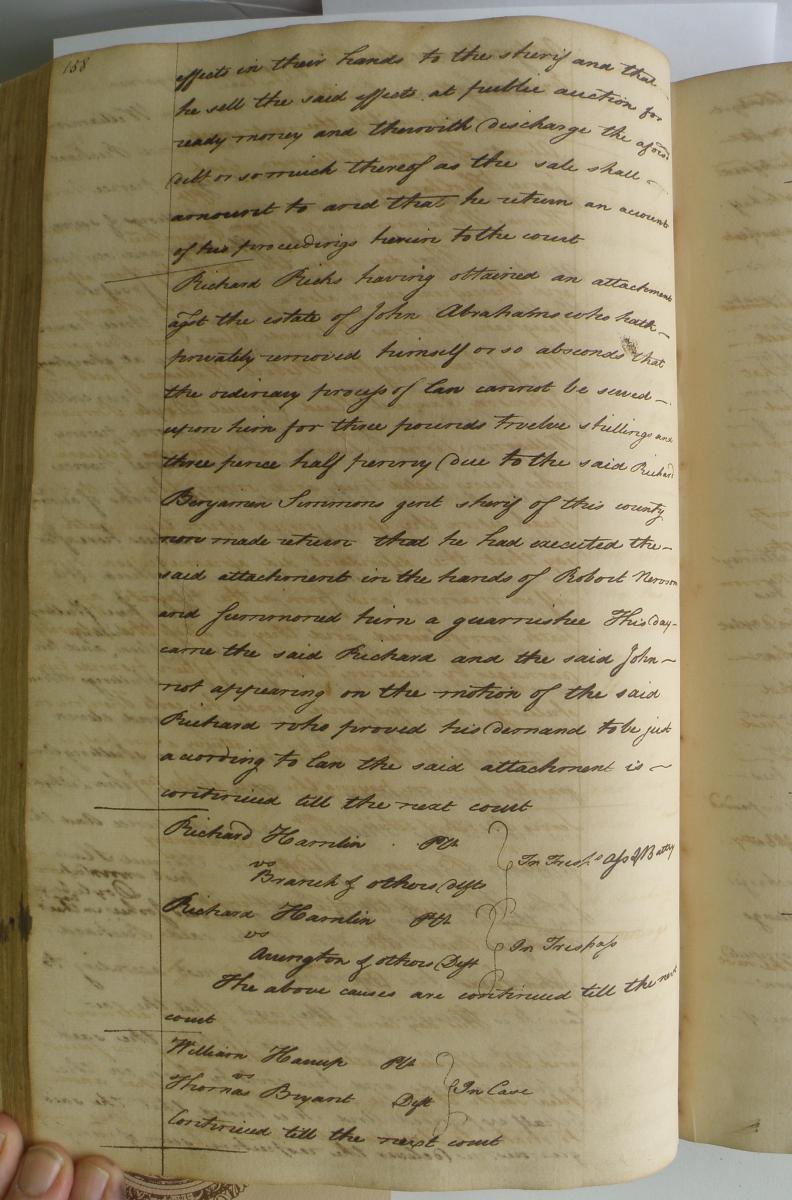 158
effects in their hands to the sherif and that
he sell the said effects at public auction for
ready money and therewith discharge the afores.d
debt or so much thereof as the sale shall
amount to and that he return an account
of his proceedings herein to the court
Richard Ricks having obtained an attachment
agst the estate of John Abrahams who hath
privately removed himself or so absconds that
the ordinary process of law cannot be served
upon him for three pounds twelve shillings and
three pence half penny due to the said Richard
Benjamen Simmons gent sherif of this county
now made return that he had executed the
said attachment in the hands of Robert Newsom
and summoned him a guarnishee This day
came the said Richard and the said John
not appearing on the motion of the said
Richard who proved his demand to be just
acording to law the said attachment is
continued till the next court
Richard Hamlin Plt
vs
Branch & others defts
In Tresps Asst & Battry
Richard Hamlin Plt
vs
Arrington & others Deft
In Trespass
The above causes are continued till the next
court
William Harrup Plt
vs
Thomas Bryant Deft
In Case
Continued till the next court